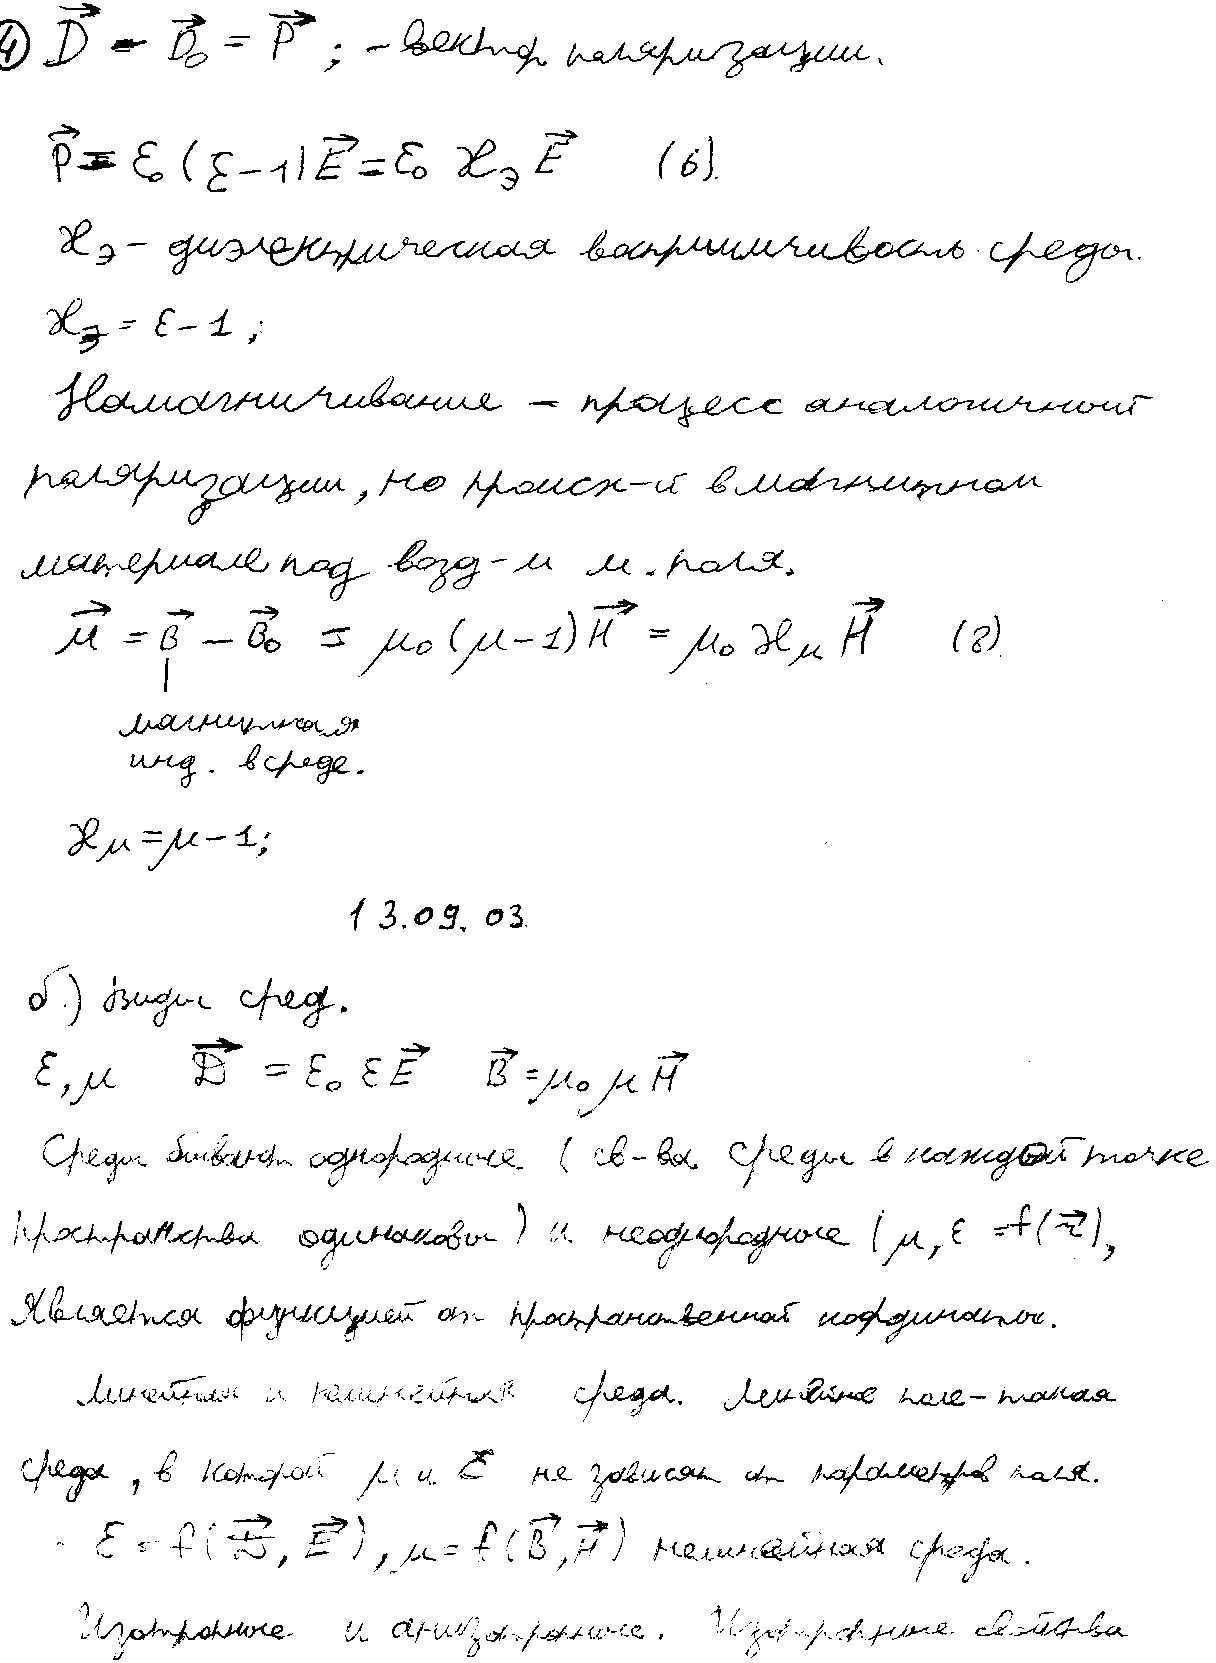 ④ D⃗ - D⃗₀ = P⃗ ; - вектор поляризации.
P⃗ = ε₀(ε-1)E⃗ = ε₀ ϰ_э E⃗ (6).
ϰ_э - диэлектрическая восприимчивость среды.
ϰ_э = ε-1;
Намагничивание - процесс аналогичный
поляризации, но происх-й в магнитном
материале под возд-м м. поля.
M⃗ = B⃗ - B⃗₀ = μ₀(μ-1)H⃗ = μ₀ ϰ_м H⃗ (8).
магнитная
инд. в среде.
ϰ_м = μ-1;
13.09.03.
б.) Виды сред.
ε, μ D⃗ = ε₀ εE⃗ B⃗ = μ₀ μH⃗
Среды бывают однородные (св-ва среды в каждой точке
пространства одинаковы) и неоднородные (μ, ε = f(r⃗),
является функцией от пространственной координаты.
Линейная и нелинейная среда. Линейное поле - такая
среда, в которой μ и ε не зависят от параметров поля.
ε = f(D⃗, E⃗), μ = f(B⃗, H⃗) нелинейная среда.
Изотропные и анизотропные. Изотропные свойства